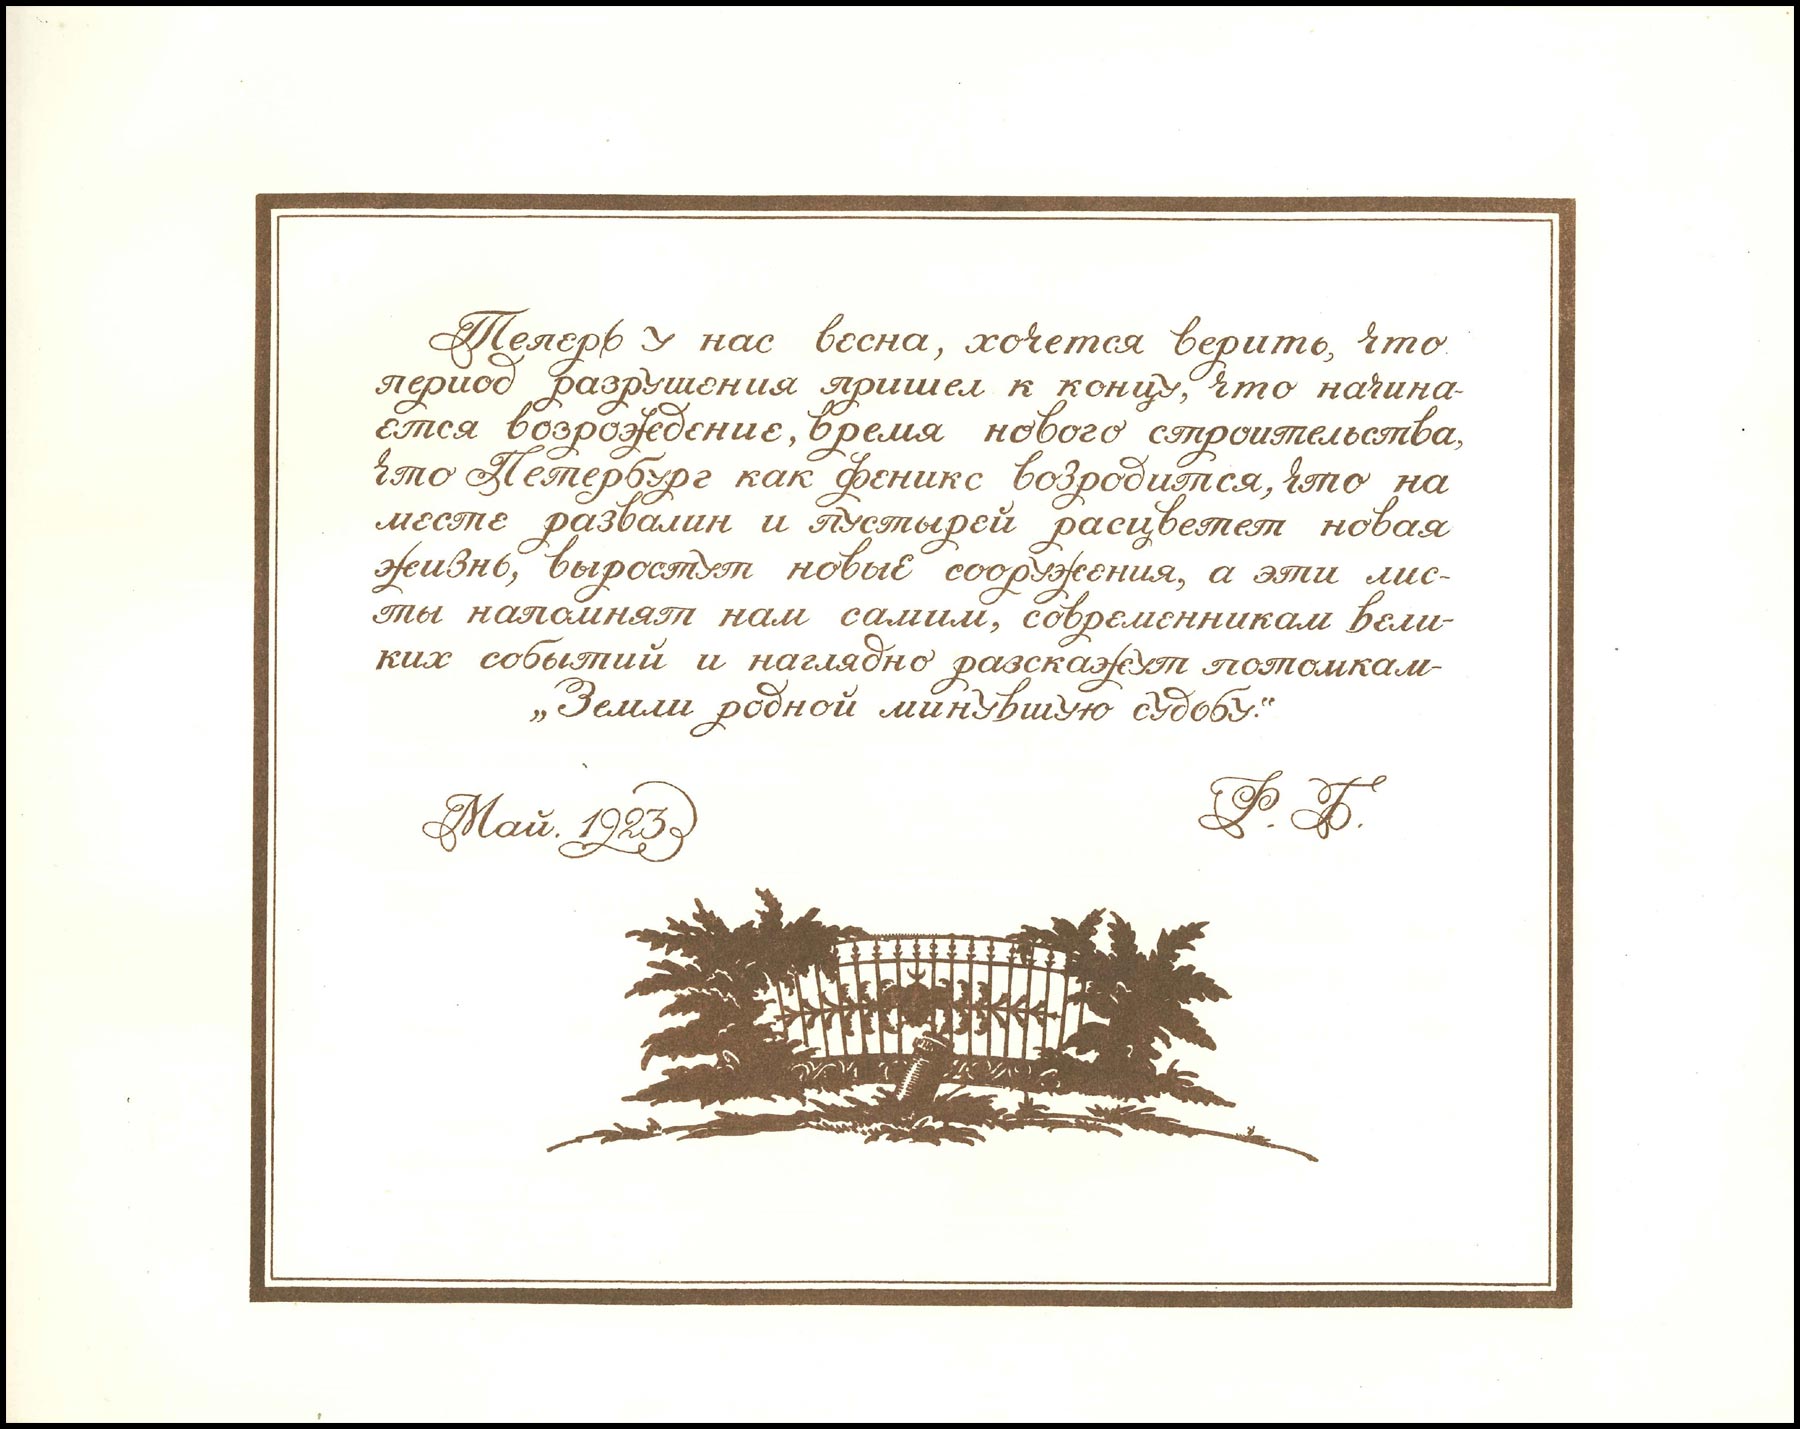 Теперь у нас весна, хочется верить, что
период разрушения пришел к концу, что начина-
ется возрождение, время нового строительства,
что Петербург как феникс возродится, что на
месте развалин и пустырей расцветет новая
жизнь, выростут новые сооружения, а эти лис-
ты напомнят нам самим, современникам вели-
ких событий и наглядно разскажут потомкам-
„Земли родной минувшую судьбу.“
Май. 1923
Ф. Б.